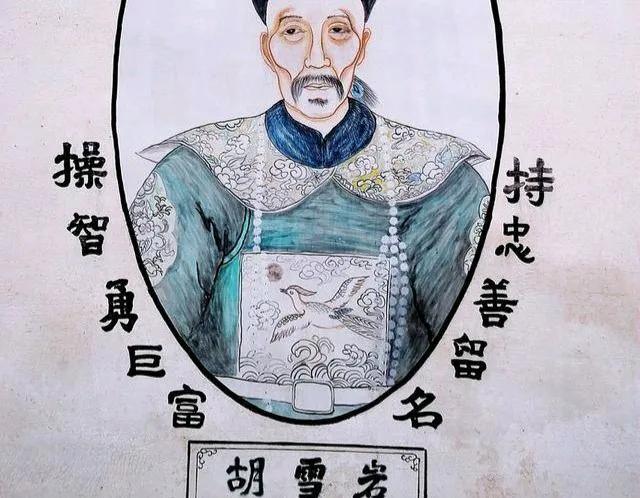 操智勇巨富
持忠善留名
胡雪岩